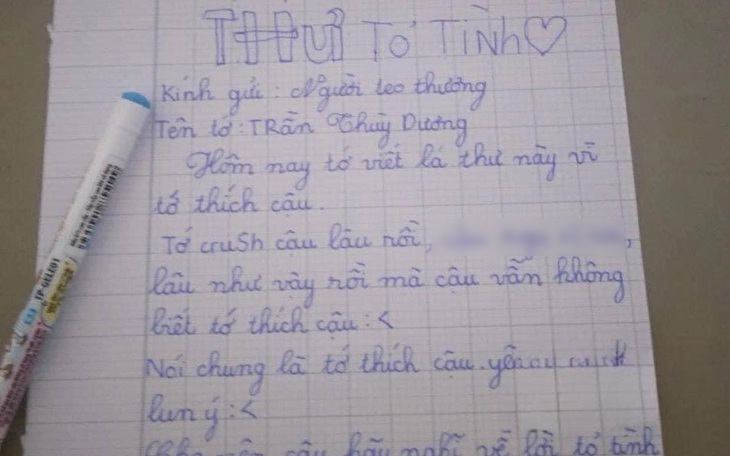 THƯ TỎ TÌNh♡
Kính gửi: Người teo thương
Tên tớ: TRần Thuỳ Dương
Hôm nay tớ viết lá thư này vì
tớ thích cậu.
Tớ cruSh cậu lâu rồi,
lâu như vậy rồi mà cậu vẫn không
biết tớ thích cậu :<
Nói chung là tớ thích cậu
lun ý :<
cậu hãy nghĩ về lời tỏ tình
TP-GELE01